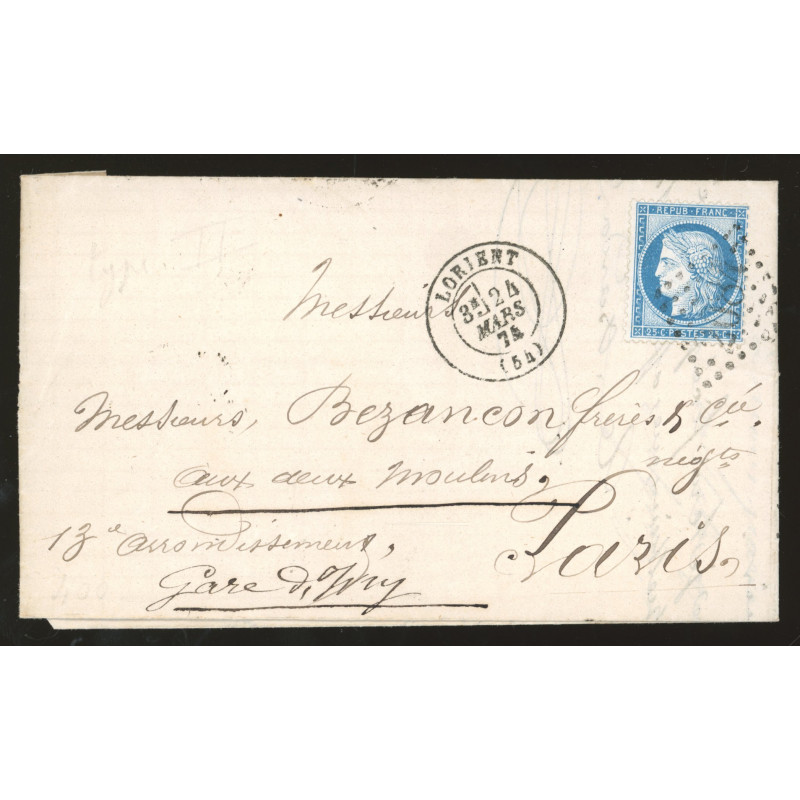 REPUB·FRANC
25 C POSTES 25 C
LORIENT
3E 24
MARS
74
(54)
Messieurs
Messieurs, Bezançon frères & Cie.
négts
aux deux Moulins,
13e arrondissement,
Paris,
Gare d'Ivry
type II